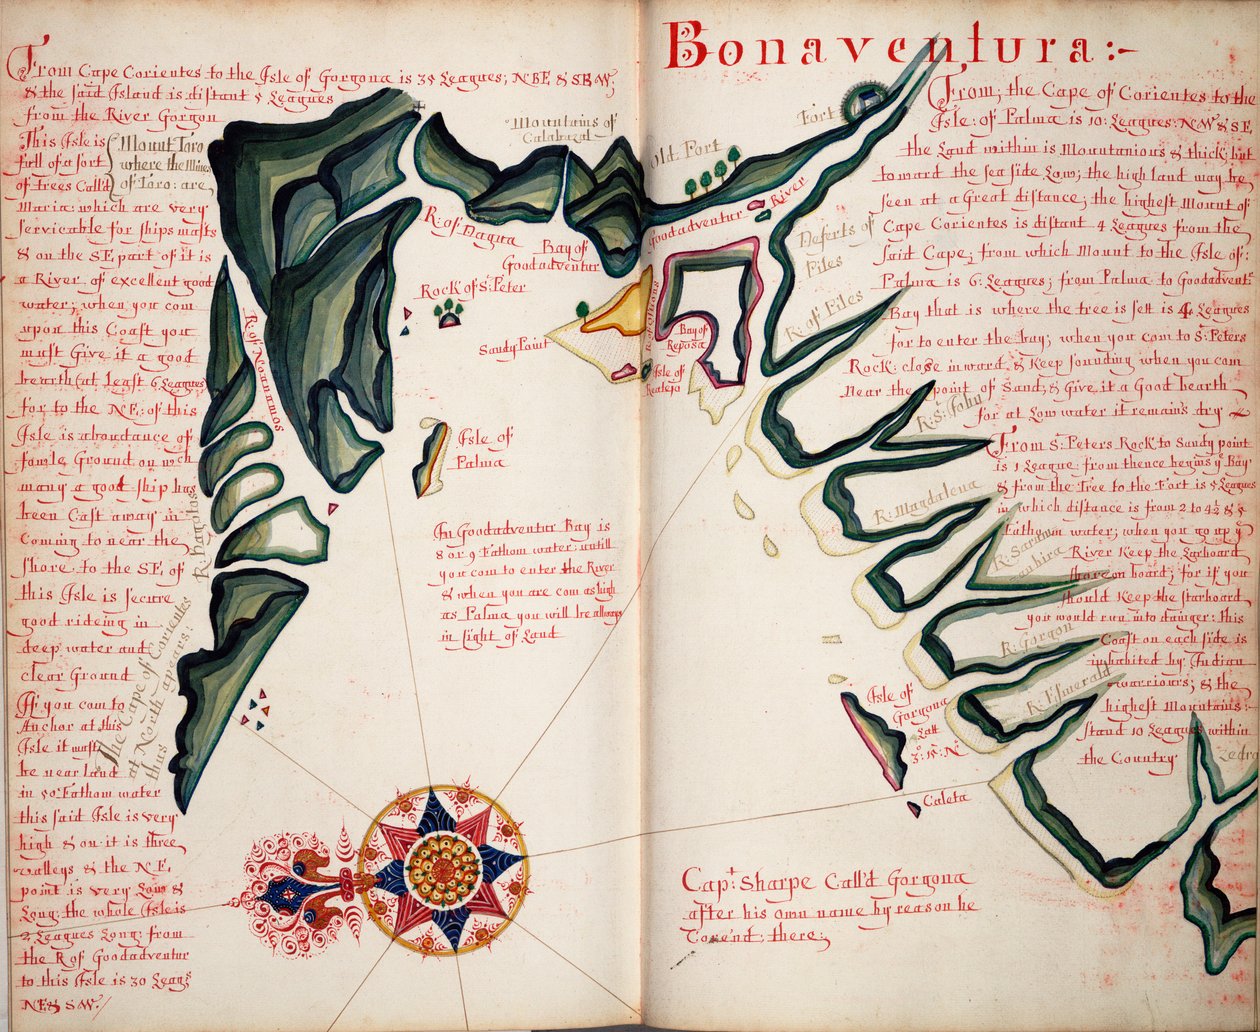 Bonaventura:-
From Cape Corientes to the Isle of Gorgona is 34 Leagues; NBE & SBW;
& the said Island is distant 5 Leagues
from the River Gorgon
This Isle is
full of a sort
of trees Call'd
Maria: which are very
servicable for ships masts
& on the SE part of it is
a River of excellent good
water; when you com
upon this Coast you
must Give it a good
bearth (at Least 6 Leagues
for to the NE: of this
Isle is aboundance of
fowle Ground on wch
many a good ship has
been Cast away in
Coming to near the
shore to the SE of
this Isle is secure
good rideing in
deep water and
clear Ground
If you com to
Anchor at this
Isle it must
be near land
in 50 Fathom water
this said Isle is very
high & on it is three
valleys & the NE
point is very Low &
Long: the whole Isle is
2 Leagues Long: from
the R of Goodadventur
to this Isle is 30 Leags
NE & SW:
Mount Toro
where the Mines
of Toro: are
Mountains of
Calabazal
R: of Nagua
Bay of
Goodadventur
Rock of S: Peter
R: of Noanamos
Sandy Point
Isle of
Palma
R: bagotas
The Cape of Corientes
at North apears:
thus
In Goodadventur Bay is
8 or 9 Fathom water; untill
you com to enter the River
& when you are com as high
as Palma you will be allways
in sight of Land
Old Port
Fort
Goodadventur River
Bay of
Reposa
Isle of
Realejo
Deserts of
Piles
R: of Piles
R: S: John
R: Magdalena
R: Gorgon
R: Esmerald
Isle of
Gorgona
Latt
3°: 15': N°
Caleta
From; the Cape of Corientes to the
Isle: of Palma is 10: Leagues: NW & SE
the Land within is Mountanious & thick; but
toward the sea side Low; the high land may be
seen at a Great distance; the highest Mount of
Cape Corientes is distant 4 Leagues from the
said Cape; from which Mount to the Isle of:
Palma is 6: Leagues; from Palma to Goodadvent
Bay that is where the tree is sett is 4 Leagues
for to enter the bay; when you com to S: Peters
Rock: close inward; & Keep sounding when you com
Near the point of Sand; & Give it a Good bearth
for at Low water it remains dry
From S: Peters Rock to Sandy point
is 1 League: from thence begins ye Bay
& from the Tree to the Fort is 5 Leagues
in which distance is from 2 to 4½ & 5
Fathom water; when you go up ye
River Keep the Larboard
shore on board; for if you
should Keep the starboard
you would run into danger: this
Coast on each side is
inhabited by Indian
warriours; & the
highest Mountains
stand 10 Leagues within
the Country
Capt: Sharpe Call'd Gorgona
after his own name by reason he
Carend: there;